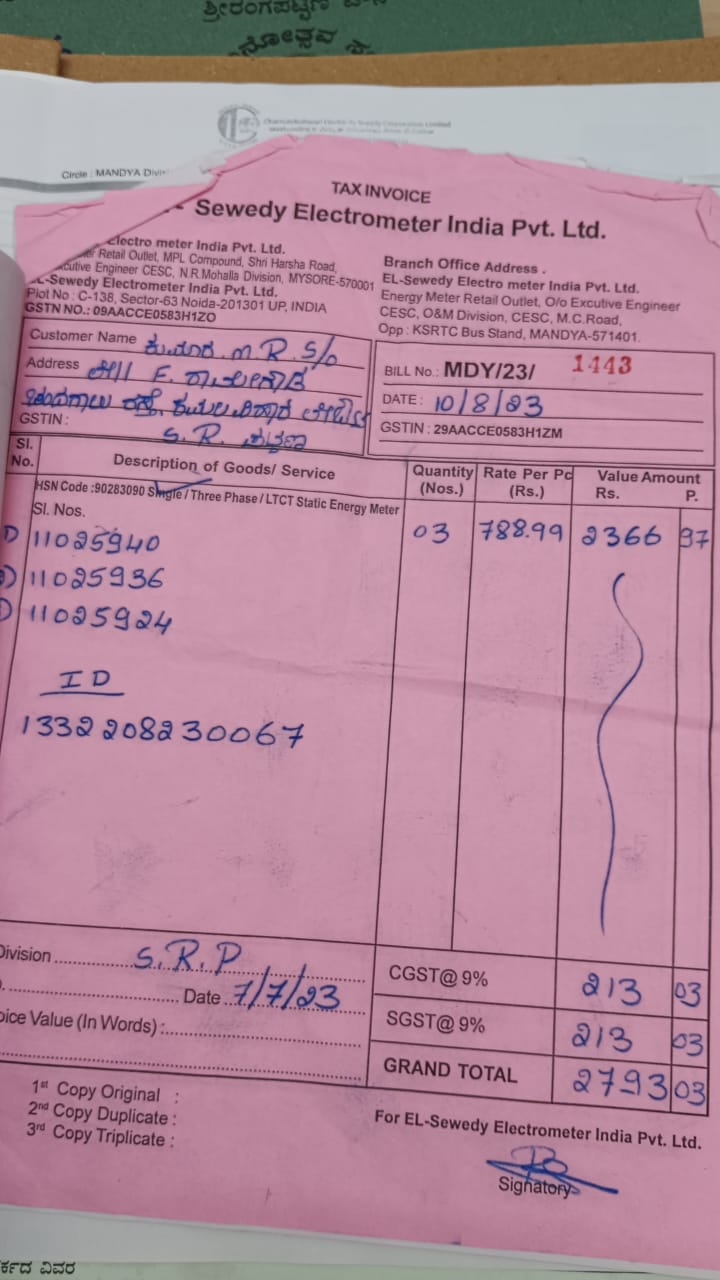 ಶ್ರೀರಂಗಪಟ್ಟಣ
Circle : MANDYA
TAX INVOICE
Sewedy Electrometer India Pvt. Ltd.
Electro meter India Pvt. Ltd.
Retail Outlet, MPL Compound, Shri Harsha Road,
Engineer CESC, N.R.Mohalla Division, MYSORE-570001
EL-Sewedy Electrometer India Pvt. Ltd.
Plot No : C-138, Sector-63 Noida-201301 UP, INDIA
GSTN NO.: 09AACCE0583H1ZO
Branch Office Address .
EL-Sewedy Electro meter India Pvt. Ltd.
Energy Meter Retail Outlet, O/o Excutive Engineer
CESC, O&M Division, CESC, M.C.Road,
Opp : KSRTC Bus Stand, MANDYA-571401.
Customer Name ಕುಮಾರ. M. R. S/o
Address
GSTIN : S. R.
BILL No.: MDY/23/ 1443
DATE : 10/8/23
GSTIN : 29AACCE0583H1ZM
Sl. No. Description of Goods/ Service Quantity (Nos.) Rate Per Pc (Rs.) Value Amount Rs. P.
HSN Code :90283090 Single / Three Phase / LTCT Static Energy Meter
Sl. Nos.
11025940 03 788.99 2366 97
11025936
11025924
ID
1332208230067
Division S.R.P
Date 7/7/23
CGST@ 9% 213 03
SGST@ 9% 213 03
Value (In Words) :
GRAND TOTAL 2793 03
1st Copy Original :
2nd Copy Duplicate :
3rd Copy Triplicate :
For EL-Sewedy Electrometer India Pvt. Ltd.
Signatory
ವಿವರ